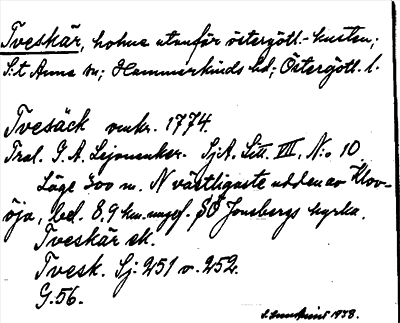 Tveskär, holme utanför östergötl.-kusten;
S:t Anna sn; Hammarkinds hd; Östergötl. l.
Tvesäck omkr. 1774.
Tral. G. A. Lejonanker. SjA. Litt. VII. N:o 10
Läge 300 m. N västligaste udden av Klov-
öja, bel. 8,9 km. ungef. SO Jonsbergs kyrka.
Tveskär ek.
Tvesk. Sj: 251 o. 252.
G. 56.
1938.